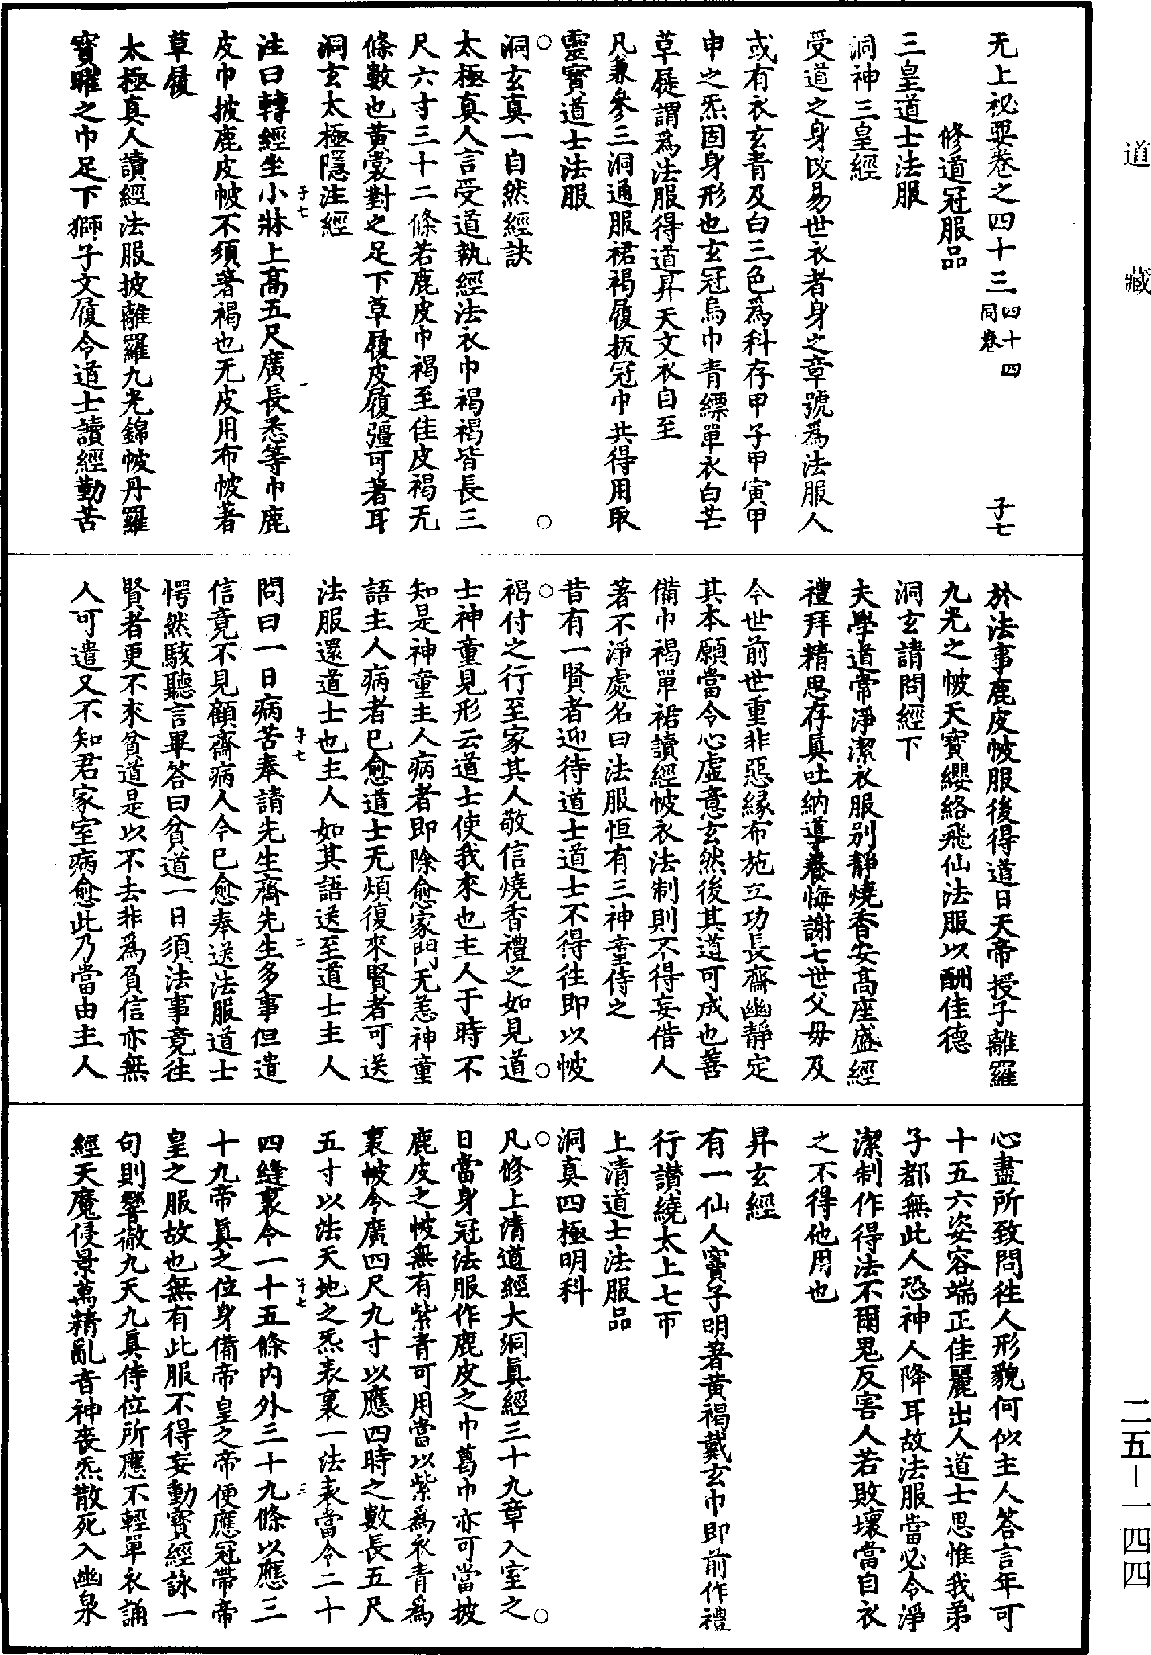 道藏
无上祕要卷之四十三 四十四同卷 子七
修道冠服品
三皇道士法服
洞神三皇經
受道之身改易世衣者身之章號為法服人
或有衣玄青及白三色為科存甲子甲寅甲
申之炁固身形也玄冠烏巾青縹單衣白芒
草屣謂為法服得道昇天文衣自至
凡兼參三洞通服裙褐履扳冠巾共得用取
靈寶道士法服
洞玄真一自然經訣
太極真人言受道執經法衣巾褐褐皆長三
尺六寸三十二條若鹿皮巾褐至佳皮褐无
條數也黃裳對之足下草履皮履彊可著耳
洞玄太極隱注經
注曰轉經坐小牀上高五尺廣長悉等巾鹿
皮巾披鹿皮帔不須著褐也无皮用布帔著
草履
太極真人讀經法服披離羅九光錦帔丹羅
寶曜之巾足下獅子文履今道士讀經勤苦
於法事鹿皮帔服後得道日天帝授子離羅
九光之帔天寶纓絡飛仙法服以酬佳德
洞玄請問經下
夫學道常淨潔衣服別靜燒香安高座盛經
禮拜精思存真吐納導養悔謝七世父母及
今世前世重非惡緣布施立功長齋幽靜定
其本願當令心虛意玄然後其道可成也善
備巾褐單裙讀經帔衣法制則不得妄借人
著不淨處名曰法服恒有三神童侍之
昔有一賢者迎待道士道士不得往即以帔
褐付之行至家其人敬信燒香禮之如見道
士神童見形云道士使我來也主人于時不
知是神童主人病者即除愈家門无恙神童
語主人病者已愈道士无煩復來賢者可送
法服還道士也主人如其語送至道士主人
問曰一日病苦奉請先生齋先生多事但遣
信竟不見顧齋病人今已愈奉送法服道士
愕然駭聽言畢答曰貧道一日須法事竟往
賢者更不來貧道是以不去非為負信亦無
人可遣又不知君家室病愈此乃當由主人
心盡所致問往人形貌何似主人答言年可
十五六姿容端正佳麗出人道士思惟我弟
子都無此人恐神人降耳故法服當必令淨
潔制作得法不爾鬼反害人若敗壞當自衣
之不得他用也
昇玄經
有一仙人竇子明著黃褐戴玄巾即前作禮
行讃繞太上七帀
上清道士法服品
洞真四極明科
凡修上清道經大洞真經三十九章入室之
日當身冠法服作鹿皮之巾葛巾亦可當披
鹿皮之帔無有紫青可用當以紫為衣青為
裏帔令廣四尺九寸以應四時之數長五尺
五寸以法天地之炁表裏一法表當令二十
四縫裏令一十五條內外三十九條以應三
十九帝真之位身備帝皇之帝便應冠帶帝
皇之服故也無有此服不得妄動寶經詠一
句則響徹九天九真侍位所應不輕單衣誦
經天魔侵景萬精亂音神喪炁散死入幽泉
二五-一四四
子七
子七 二
子七 三